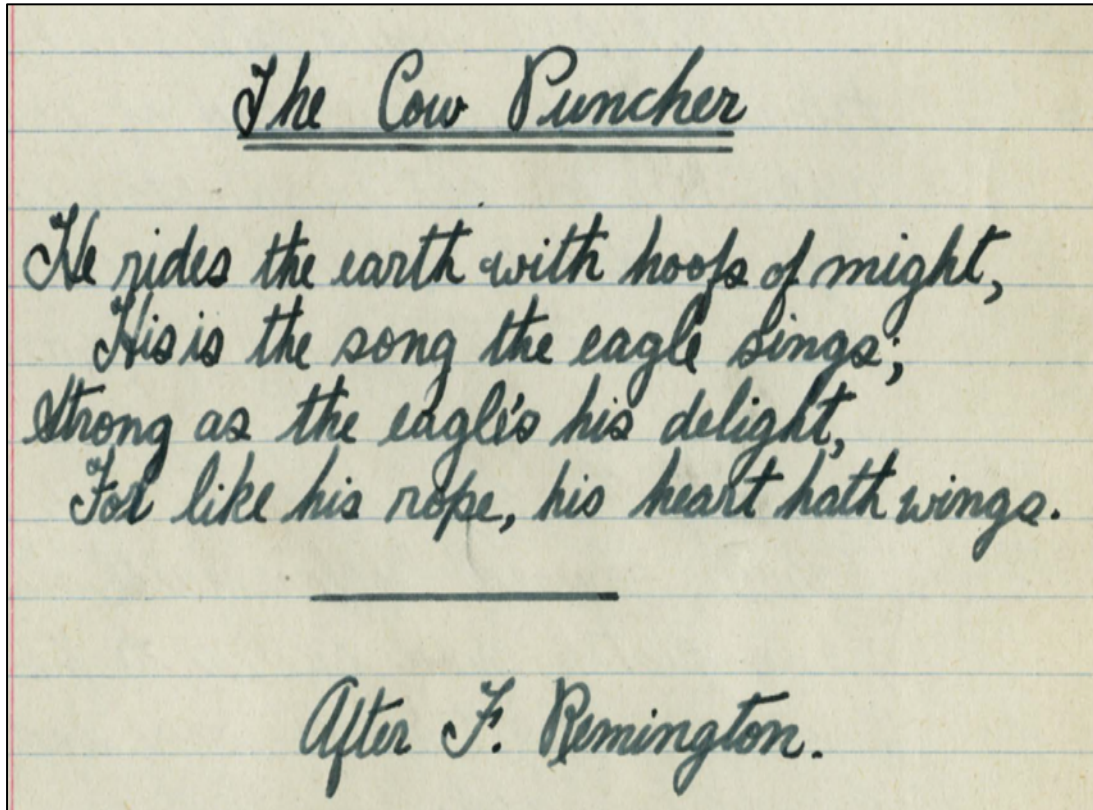 The Cow Puncher
He rides the earth with hoofs of might,
His is the song the eagle sings;
Strong as the eagle's his delight,
For like his rope, his heart hath wings.
After F. Remington.